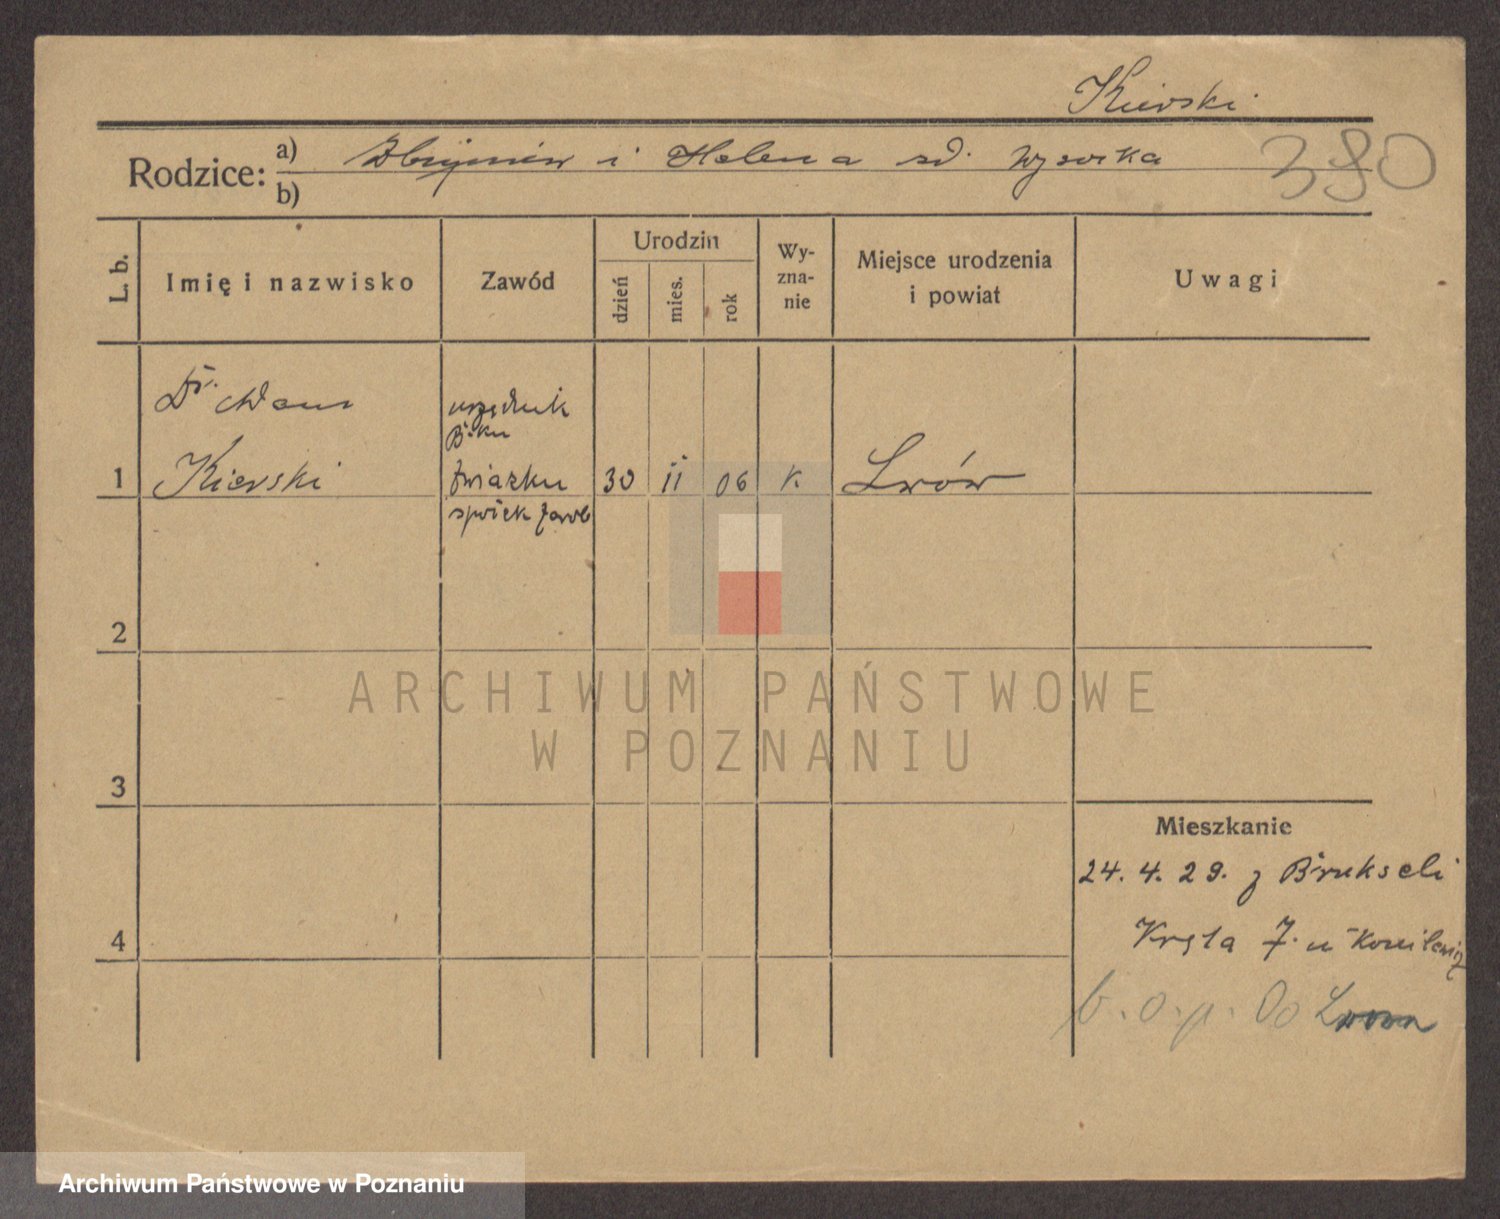 Kierski
Rodzice: a) Zbigniew i Helena zd. Wysocka
b)
380
L. b.
Imię i nazwisko
Zawód
Urodzin
dzień
mies.
rok
Wy-
zna-
nie
Miejsce urodzenia
i powiat
Uwagi
Dr. Adam
urzędnik
B-ku
1 Kierski Związku 30 11 06 k. Lwów
spółek Zarob
2
ARCHIWUM PAŃSTWOWE
W POZNANIU
3
Mieszkanie
24. 4. 29. z Brukseli
4
Kręta 7. u
b. o. p. Do Lwowa
Archiwum Państwowe w Poznaniu